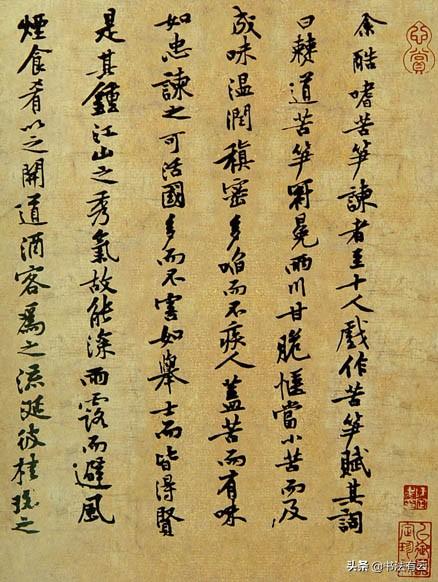 余酷嗜苦笋諫者至十人戲作苦笋賦其詞
曰僰道苦笋冠冕兩川甘脆愜當小苦而及
成味温潤稹密多啗而不疾人蓋苦而有味
如忠諫之可活國多而不害如舉士而皆得賢
是其鍾江山之秀氣故能深雨露而避風
煙食肴以之開道酒客爲之流涎彼桂之
心賞
头条 @书法有云